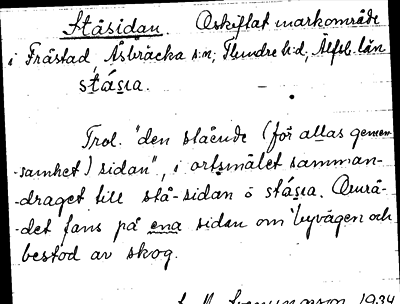 Ståsidan. Oskiflat markområde
i Frästad Åsbräcka s:n; Flundre h:d, Älfsb. län
stásıa.
Trol. "den stående (för allas gemen-
-samhet) sidan", i ortsmålet samman-
-draget till stå-sidan ò stásıa. Områ-
-det fans på ena sidan om byvägen och
bestod av skog.
1934